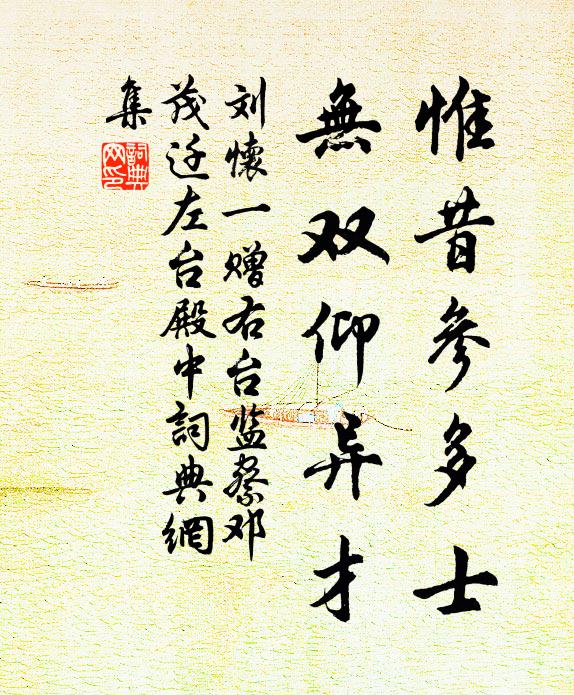 惟昔參多士
無双仰异才
刘懷一赠右台监察邓
茂迁左台殿中詞典網
集
詞典
网印